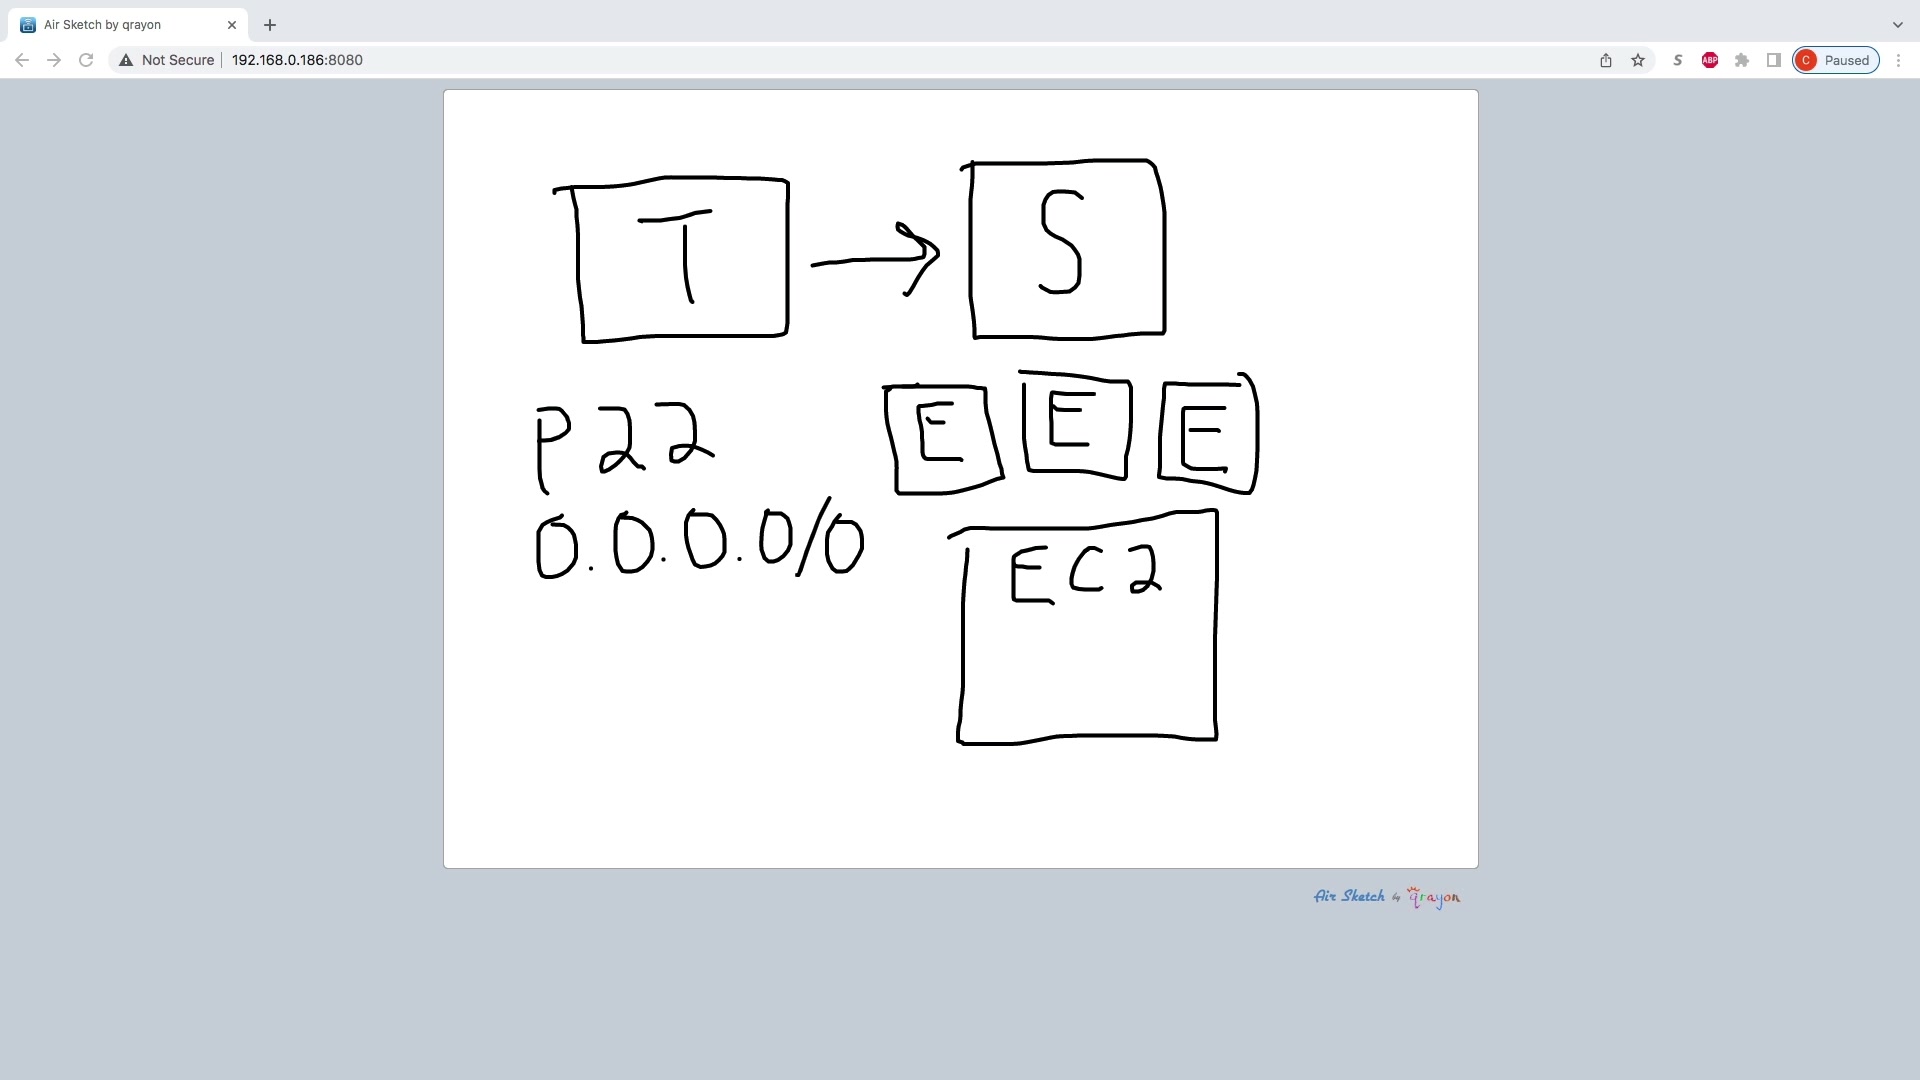 Air Sketch by qrayon
Not Secure
192.168.0.186:8080
S
ABP
C
Paused
T
S
P22
E
E
E
0.0.0.0/0
EC2
Air Sketch by qrayon